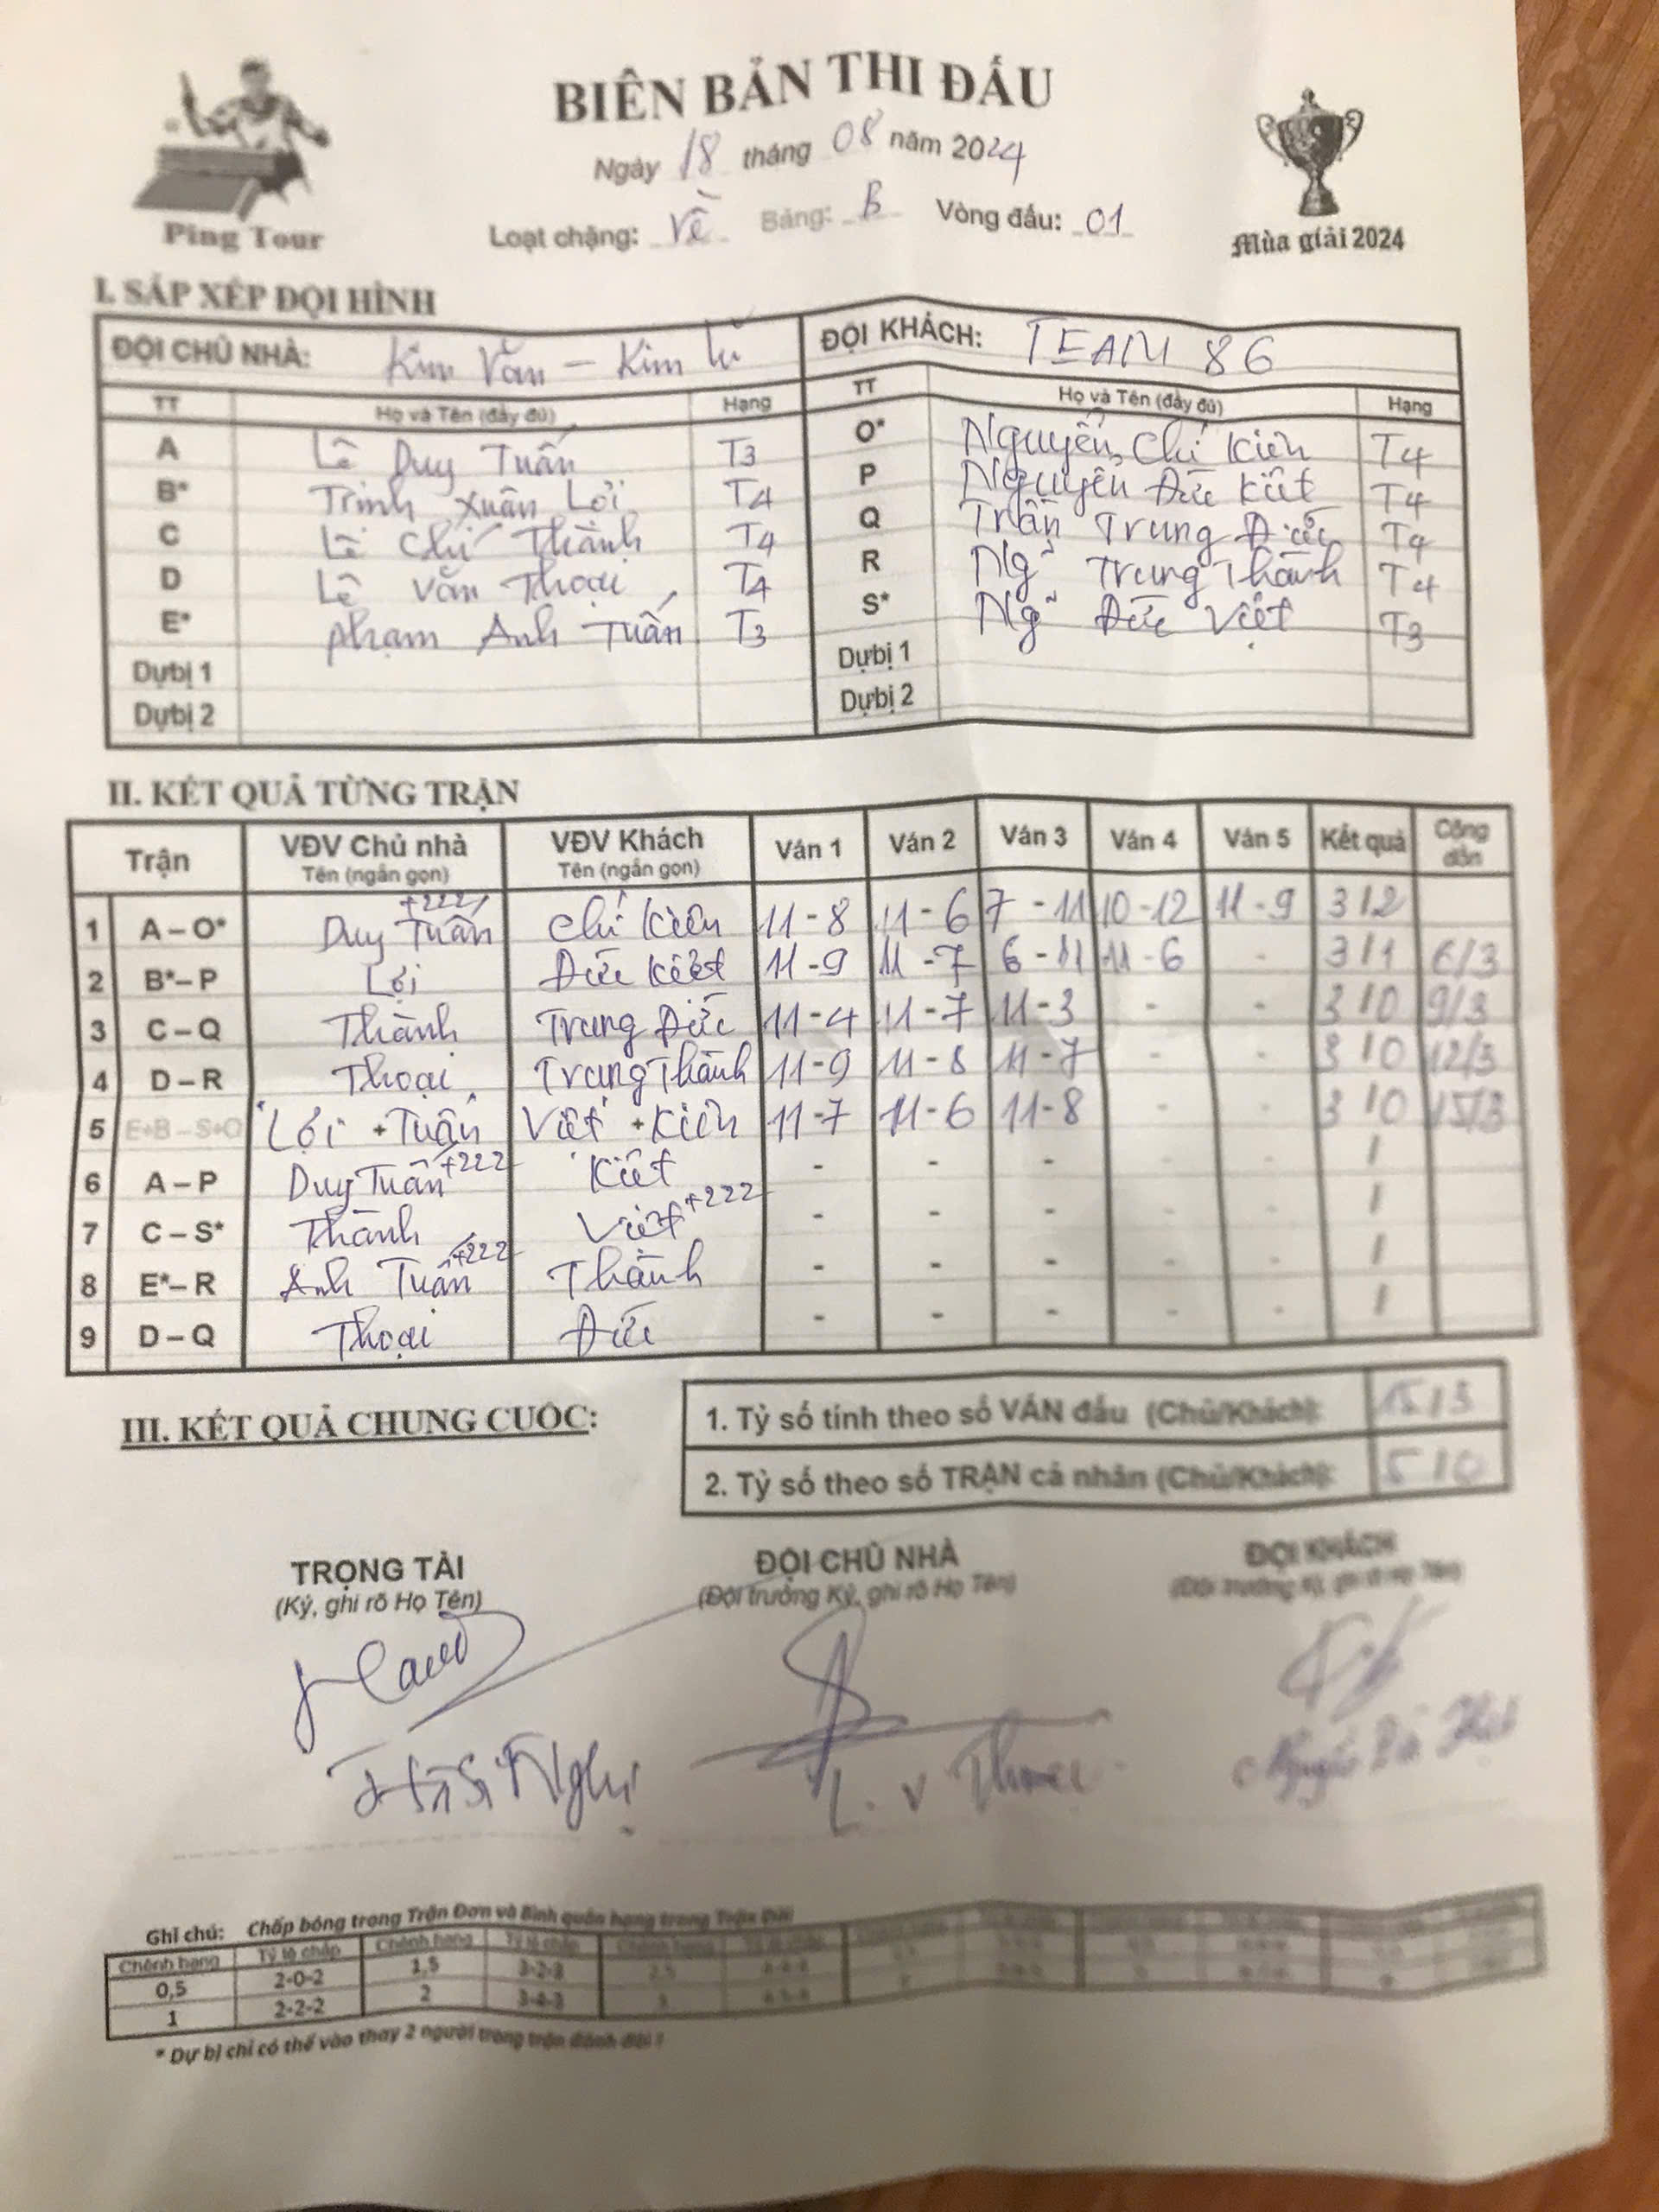 BIÊN BẢN THI ĐẤU
Ngày 18 tháng 08 năm 2024
Loạt chặng: Về Bảng: B Vòng đấu: 01
Ping Tour
Mùa giải 2024
I. SẮP XẾP ĐỘI HÌNH
ĐỘI CHỦ NHÀ: Kim Văn – Kim Lũ ĐỘI KHÁCH: TEAM 86
TT Họ và Tên (đầy đủ) Hạng TT Họ và Tên (đầy đủ) Hạng
A Lê Duy Tuấn T3 O* Nguyễn Chí Kiên T4
B* Trịnh Xuân Lợi T4 P Nguyễn Đức Kiệt T4
C Lê Chí Thành T4 Q Trần Trung Đức T4
D Lê Văn Thoại T4 R Ng~ Trung Thành T4
E* Phạm Anh Tuấn T3 S* Ng~ Đức Việt T3
Dự bị 1 Dự bị 1
Dự bị 2 Dự bị 2
II. KẾT QUẢ TỪNG TRẬN
Trận VĐV Chủ nhà Tên (ngắn gọn) VĐV Khách Tên (ngắn gọn) Ván 1 Ván 2 Ván 3 Ván 4 Ván 5 Kết quả Cộng dồn
1 A – O* Duy Tuấn +222 Chí Kiên 11-8 11-6 7-11 10-12 11-9 3/2
2 B* – P Lợi Đức Kiệt 11-9 11-7 6-11 11-6 - 3/1 6/3
3 C – Q Thành Trung Đức 11-4 11-7 11-3 - - 3/0 9/3
4 D – R Thoại Trung Thành 11-9 11-8 11-7 - - 3/0 12/3
5 E+B – S+O Lợi + Tuấn Việt + Kiên 11-7 11-6 11-8 - - 3/0 15/3
6 A – P Duy Tuấn +222 Kiệt - - - - - /
7 C – S* Thành Việt +222 - - - - - /
8 E* – R Anh Tuấn +222 Thành - - - - - /
9 D – Q Thoại Đức - - - - - /
III. KẾT QUẢ CHUNG CUỘC:
1. Tỷ số tính theo số VÁN đấu (Chủ/Khách): 15/3
2. Tỷ số theo số TRẬN cá nhân (Chủ/Khách): 5/0
TRỌNG TÀI ĐỘI CHỦ NHÀ ĐỘI KHÁCH
(Ký, ghi rõ Họ Tên) (Đội trưởng Ký, ghi rõ Họ Tên) (Đội trưởng Ký, ghi rõ Họ Tên)
L. V Thoại
Ghi chú: Chấp bóng trong Trận Đơn và Bình quân hạng trong Trận Đôi
Chênh hạng Tỷ lệ chấp Chênh hạng Tỷ lệ chấp Chênh hạng
0,5 2-0-2 1,5 3-2-3
1 2-2-2 2 3-4-3
* Dự bị chỉ có thể vào thay 2 người trong trận đánh đôi !